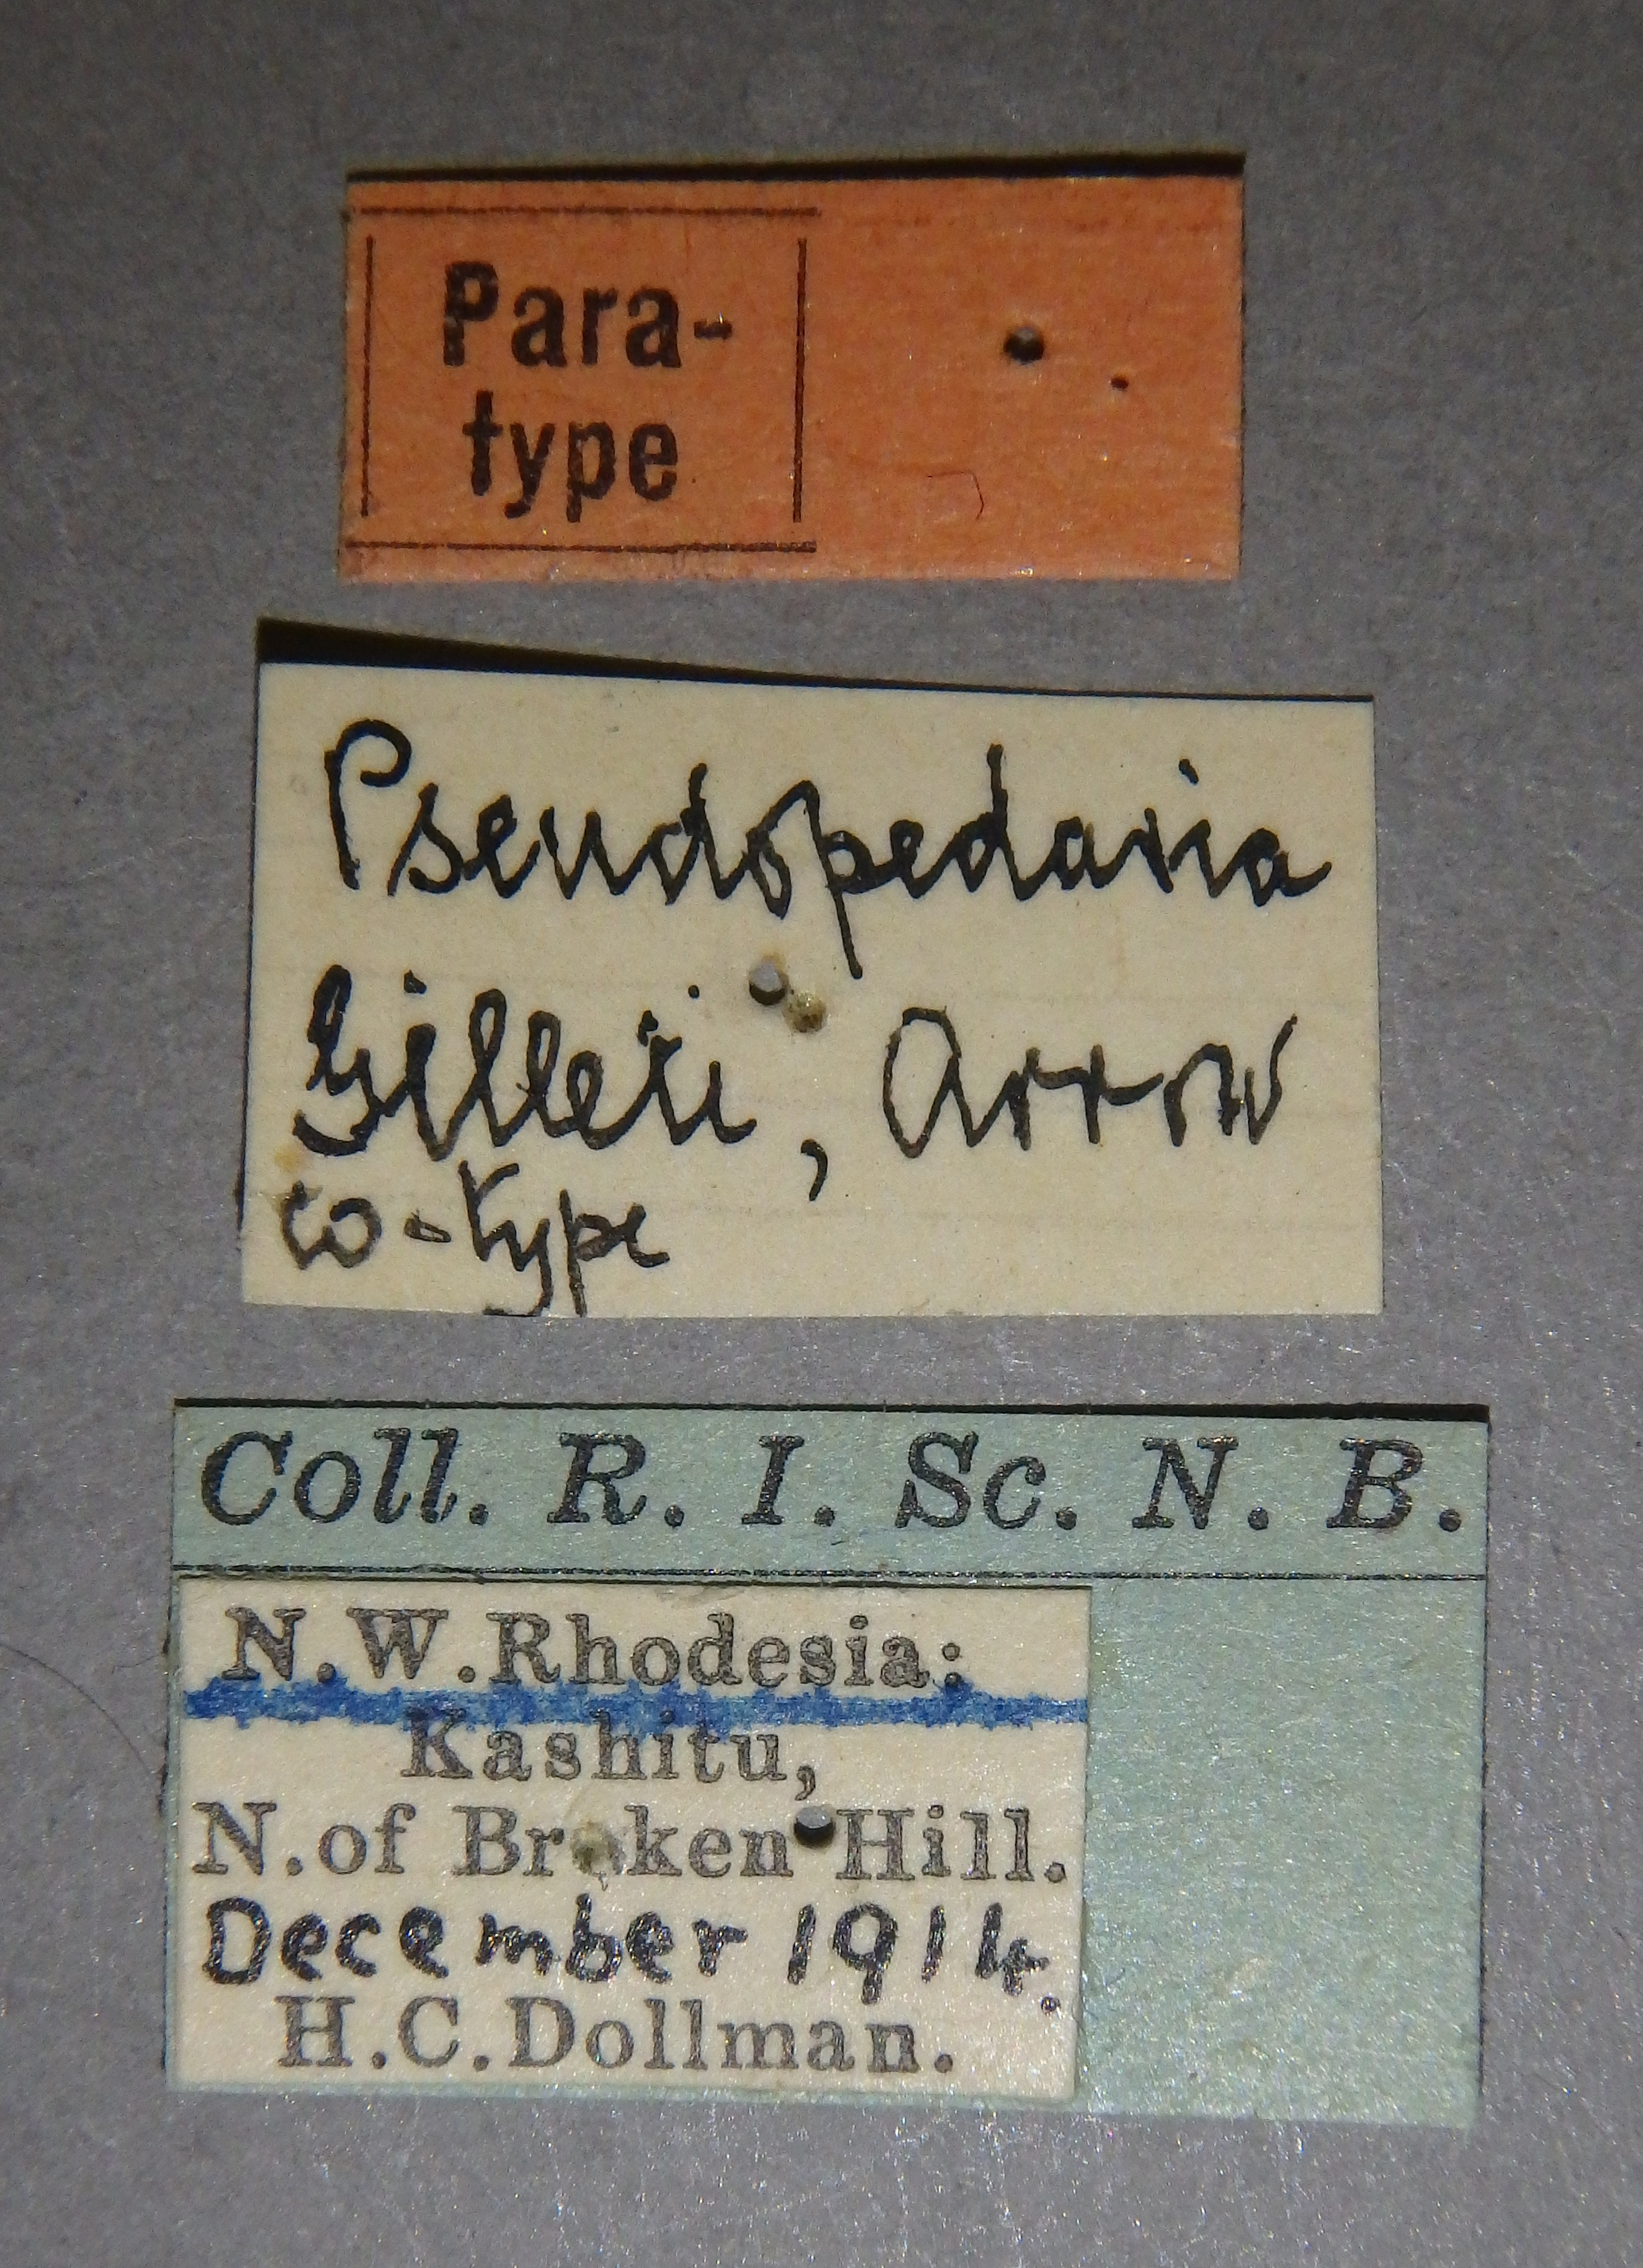 Para-
type
Pseudopedaria
Gilleti, Arrow
co-type
Coll. R. I. Sc. N. B.
N.W.Rhodesia:
Kashitu,
N.of Broken Hill.
December 1914.
H.C.Dollman.